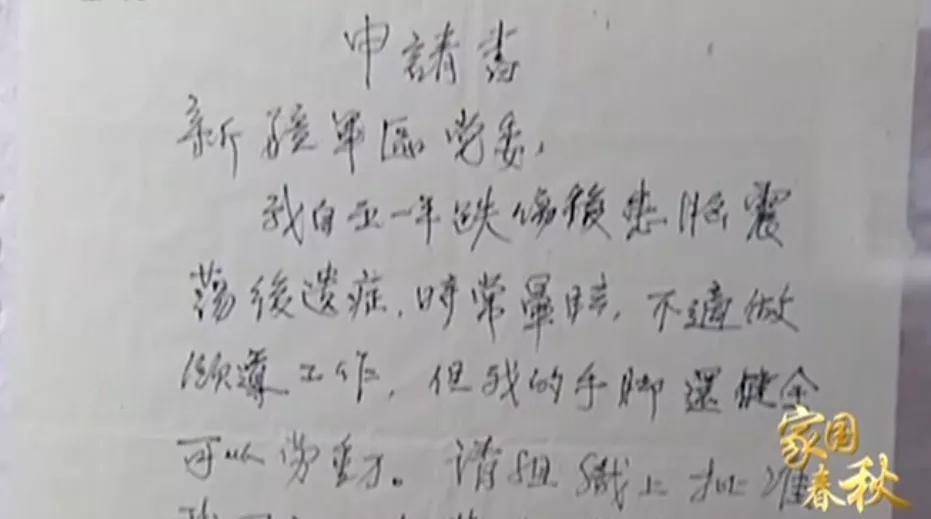 申請书
新疆軍區党委，
我自五一年跌傷後患腦震
荡後遺症，時常暈眩，不適做
領導工作，但我的手脚還健全
可以劳動。請組織上批准
家国
春秋